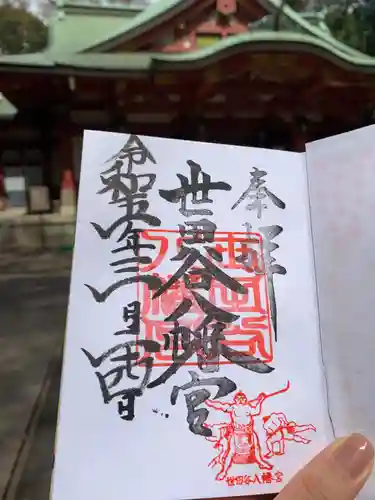 奉拝
世田谷八幡宮
令和五年三月日
世田谷八幡宮